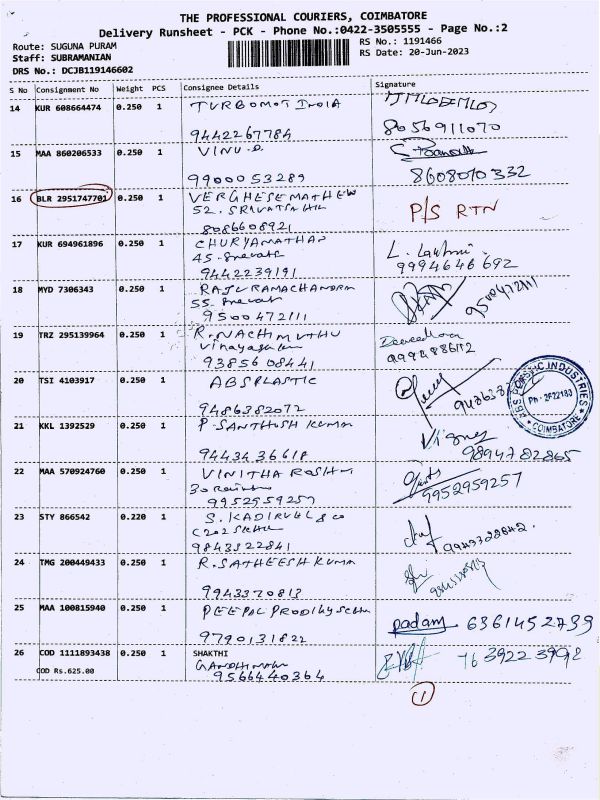 THE PROFESSIONAL COURIERS, COIMBATORE
Delivery Runsheet - PCK - Phone No.:0422-3505555 - Page No.:2
Route: SUGUNA PURAM
RS No.: 1191466
Staff: SUBRAMANIAN
RS Date: 20-Jun-2023
DRS No.: DCJB119146602
S No Consignment No Weight PCS Consignee Details Signature
14 KUR 608664474 0.250 1 TURBOMOT INDIA
9442267784 8056911070
15 MAA 860206533 0.250 1 VINU.D.
9900053289 8608070332
16 BLR 2951747701 0.250 1 VERGHESE MATHEW
52. SRIVATSA P/S RTN
8086608921
17 KUR 694961896 0.250 1 CHURYAMATHAN
45- L. Lakshmi.
9442239191 9994646692
18 MYD 7306343 0.250 1 RAJU RAMACHANDRAN
55-
9500472111 9500472111
19 TRZ 295139964 0.250 1 R. NACHIMUTHU
Vinayaga
9385608441
20 TSI 4103917 0.250 1 ABS PLASTIC
9486382072
ABS PLASTIC INDUSTRIES
COIMBATORE
21 KKL 1392529 0.250 1 P. SANTHOSH KUMAR
9443436618 9894782865
22 MAA 570924760 0.250 1 VINITHA ROSHNI
30
9952959257 9952959257
23 STY 866542 0.220 1 S. KADIRVEL & CO
9843322841
24 TMG 200449433 0.250 1 R. SATHEESH KUMAR
9943370813
25 MAA 100815940 0.250 1 PEEPAL
9790131822 padam 6361452739
26 COD 1111893438 0.250 1 SHAKTHI
COD Rs.625.00 GANDHI
9566440364
1